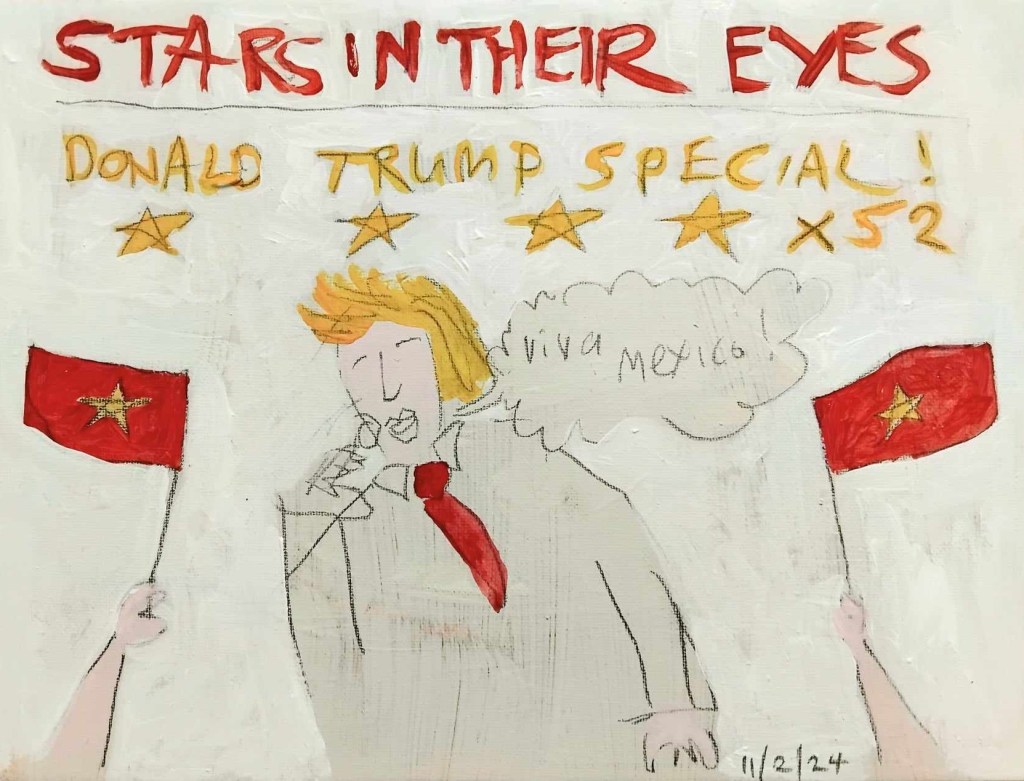 STARS IN THEIR EYES
DONALD TRUMP SPECIAL!
x52
viva mexico!
11/2/24